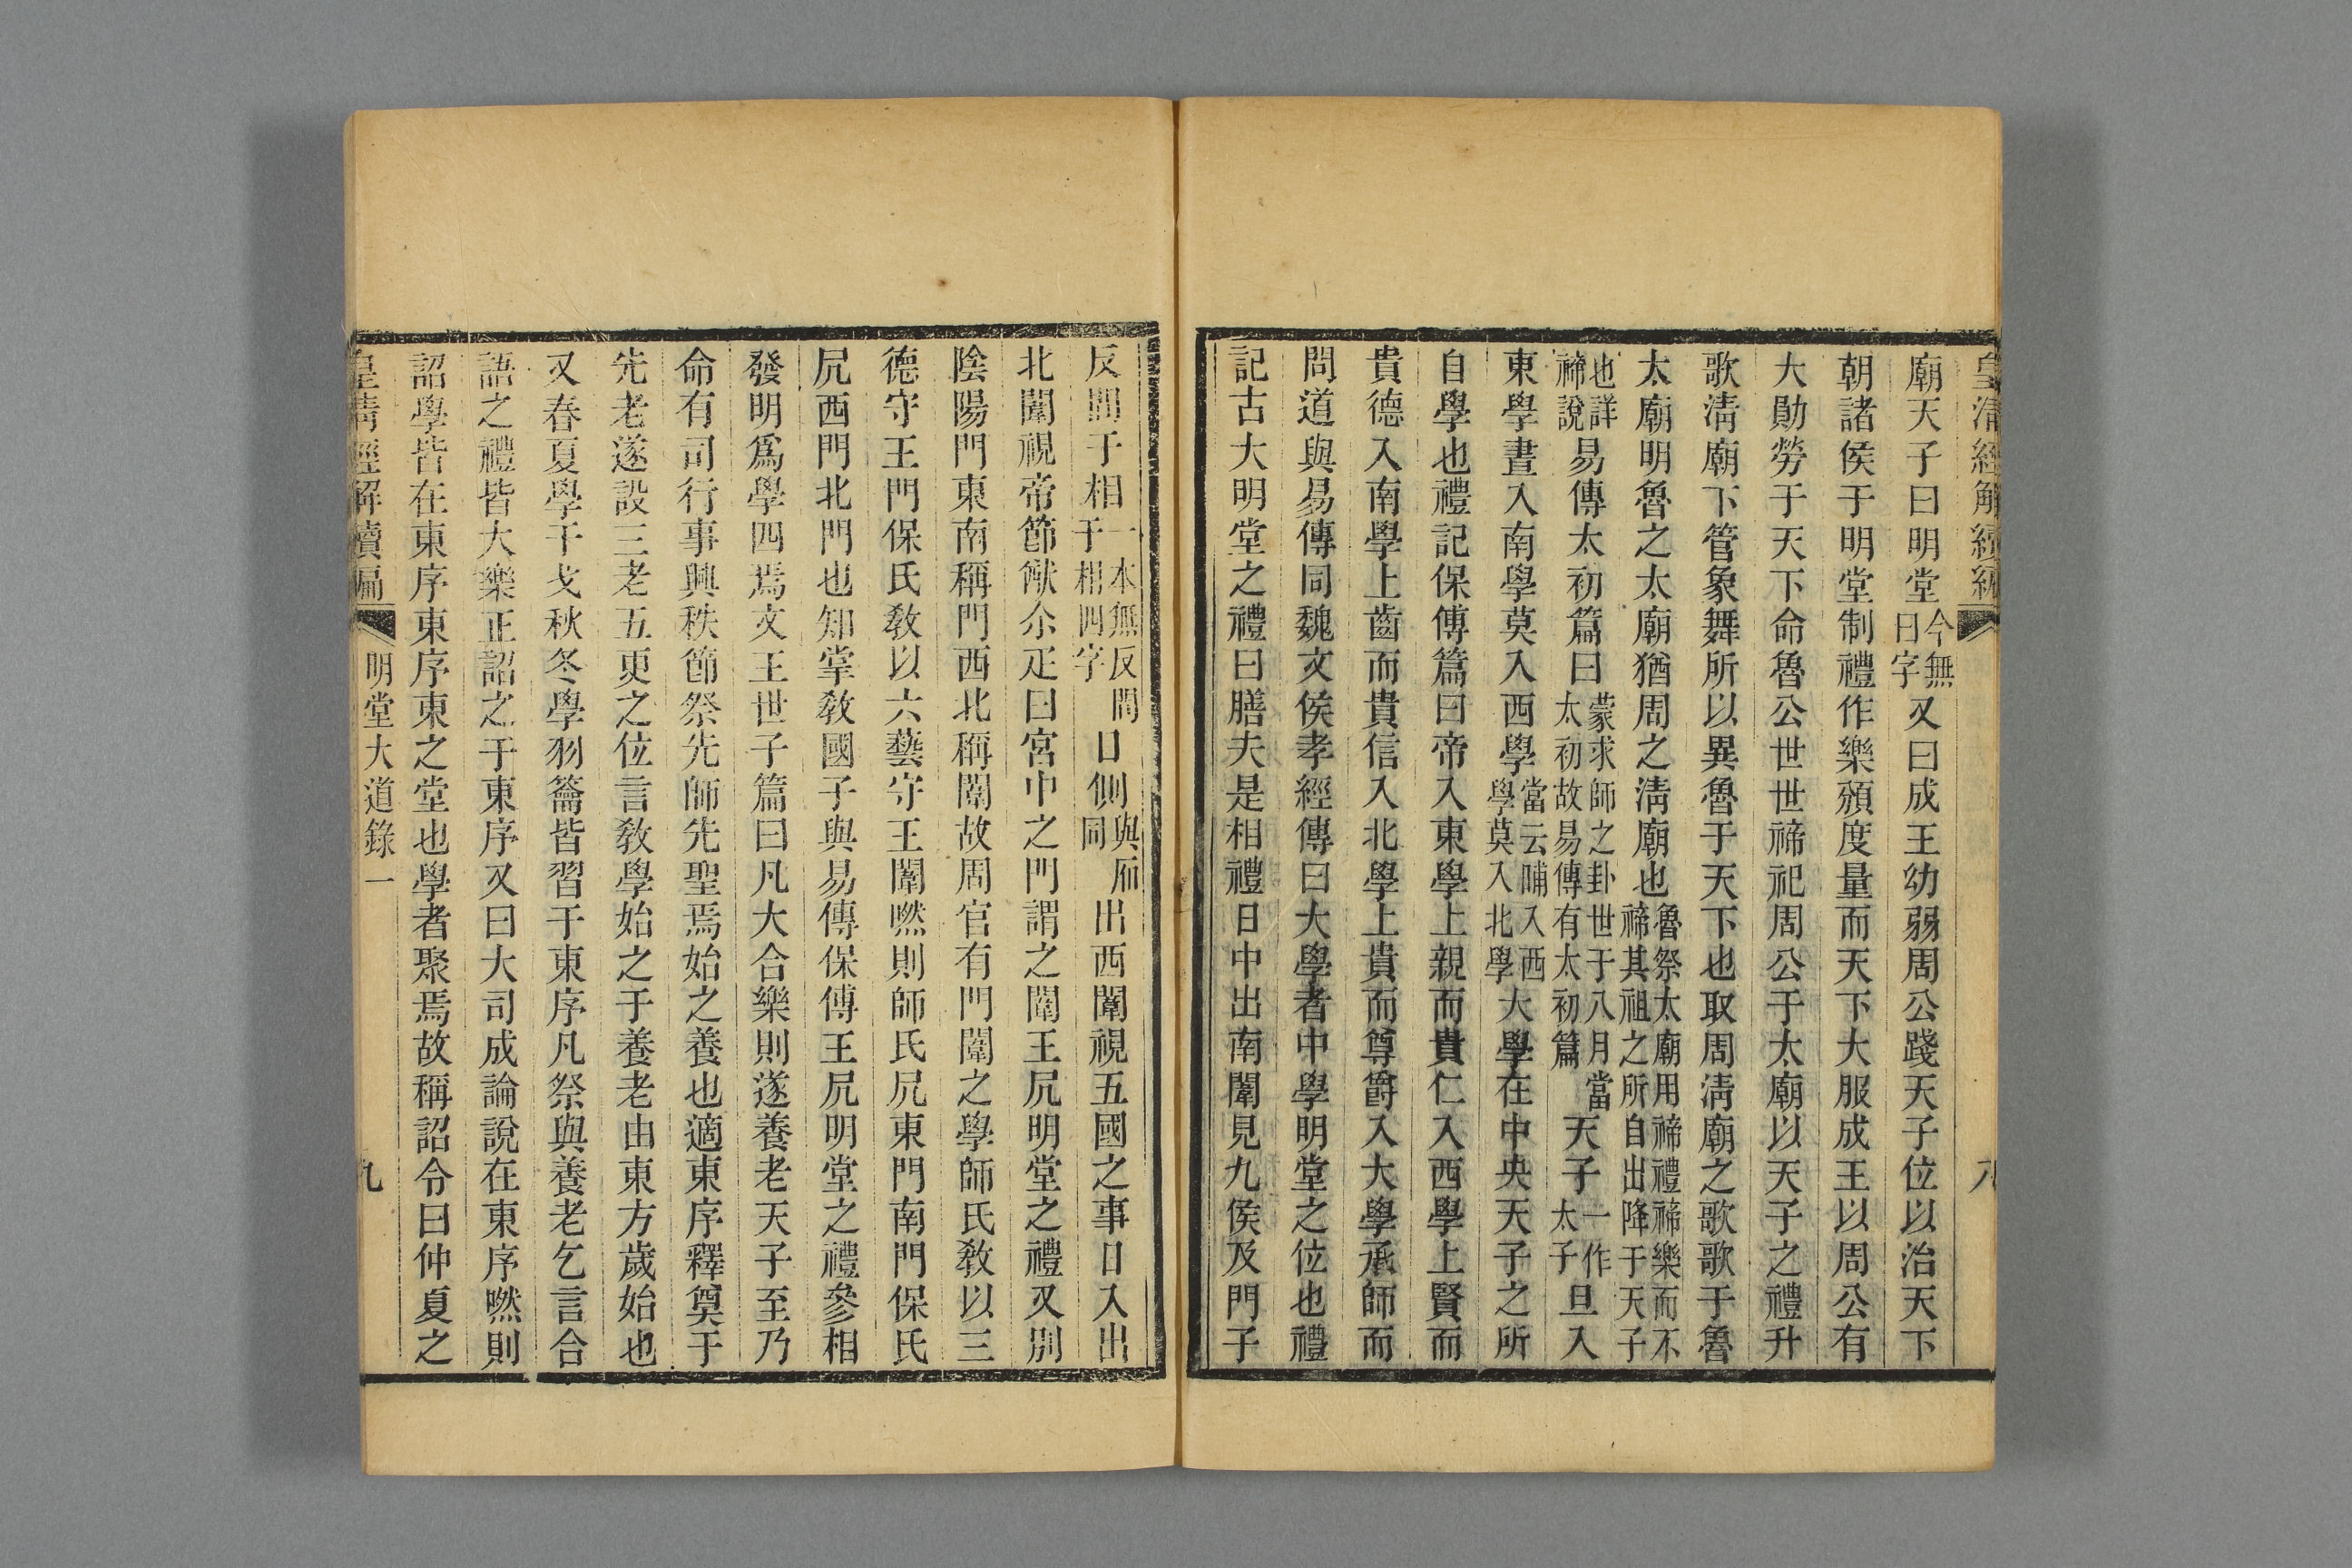 皇清經解續編
八
廟天子曰明堂今無曰字又曰成王幼弱周公踐天子位以治天下
朝諸侯于明堂制禮作樂頒度量而天下大服成王以周公有
大勛勞于天下命魯公世世禘祀周公于太廟以天子之禮升
歌淸廟下管象舞所以異魯于天下也取周淸廟之歌歌于魯
太廟明魯之太廟猶周之淸廟也魯祭太廟用禘禮禘樂而不禘其祖之所自出降于天子
也詳禘說易傳太初篇曰蒙求師之卦世于八月當太初故易傳有太初篇天子一作太子旦入
東學晝入南學莫入西學當云晡入西學莫入北學大學在中央天子之所
自學也禮記保傅篇曰帝入東學上親而貴仁入西學上賢而
貴德入南學上齒而貴信入北學上貴而尊爵入大學承師而
問道與易傳同魏文侯孝經傳曰大學者中學明堂之位也禮
記古大明堂之禮曰膳夫是相禮日中出南闈見九侯及門子
反問于相一本無反問于相四字日側與𠨮同出西闈視五國之事日入出
北闈視帝節猷尒疋曰宮中之門謂之闈王凥明堂之禮又別
陰陽門東南稱門西北稱闈故周官有門闈之學師氏敎以三
德守王門保氏敎以六藝守王闈嘫則師氏凥東門南門保氏
凥西門北門也知掌敎國子與易傳保傅王凥明堂之禮參相
發明爲學四焉文王世子篇曰凡大合樂則遂養老天子至乃
命有司行事興秩節祭先師先聖焉始之養也適東序釋奠于
先老遂設三老五更之位言敎學始之于養老由東方歲始也
又春夏學干戈秋冬學羽籥皆習于東序凡祭與養老乞言合
語之禮皆大樂正詔之于東序又曰大司成論說在東序嘫則
詔學皆在東序東序東之堂也學者聚焉故稱詔令曰仲夏之
皇清經解續編
明堂大道錄一
九